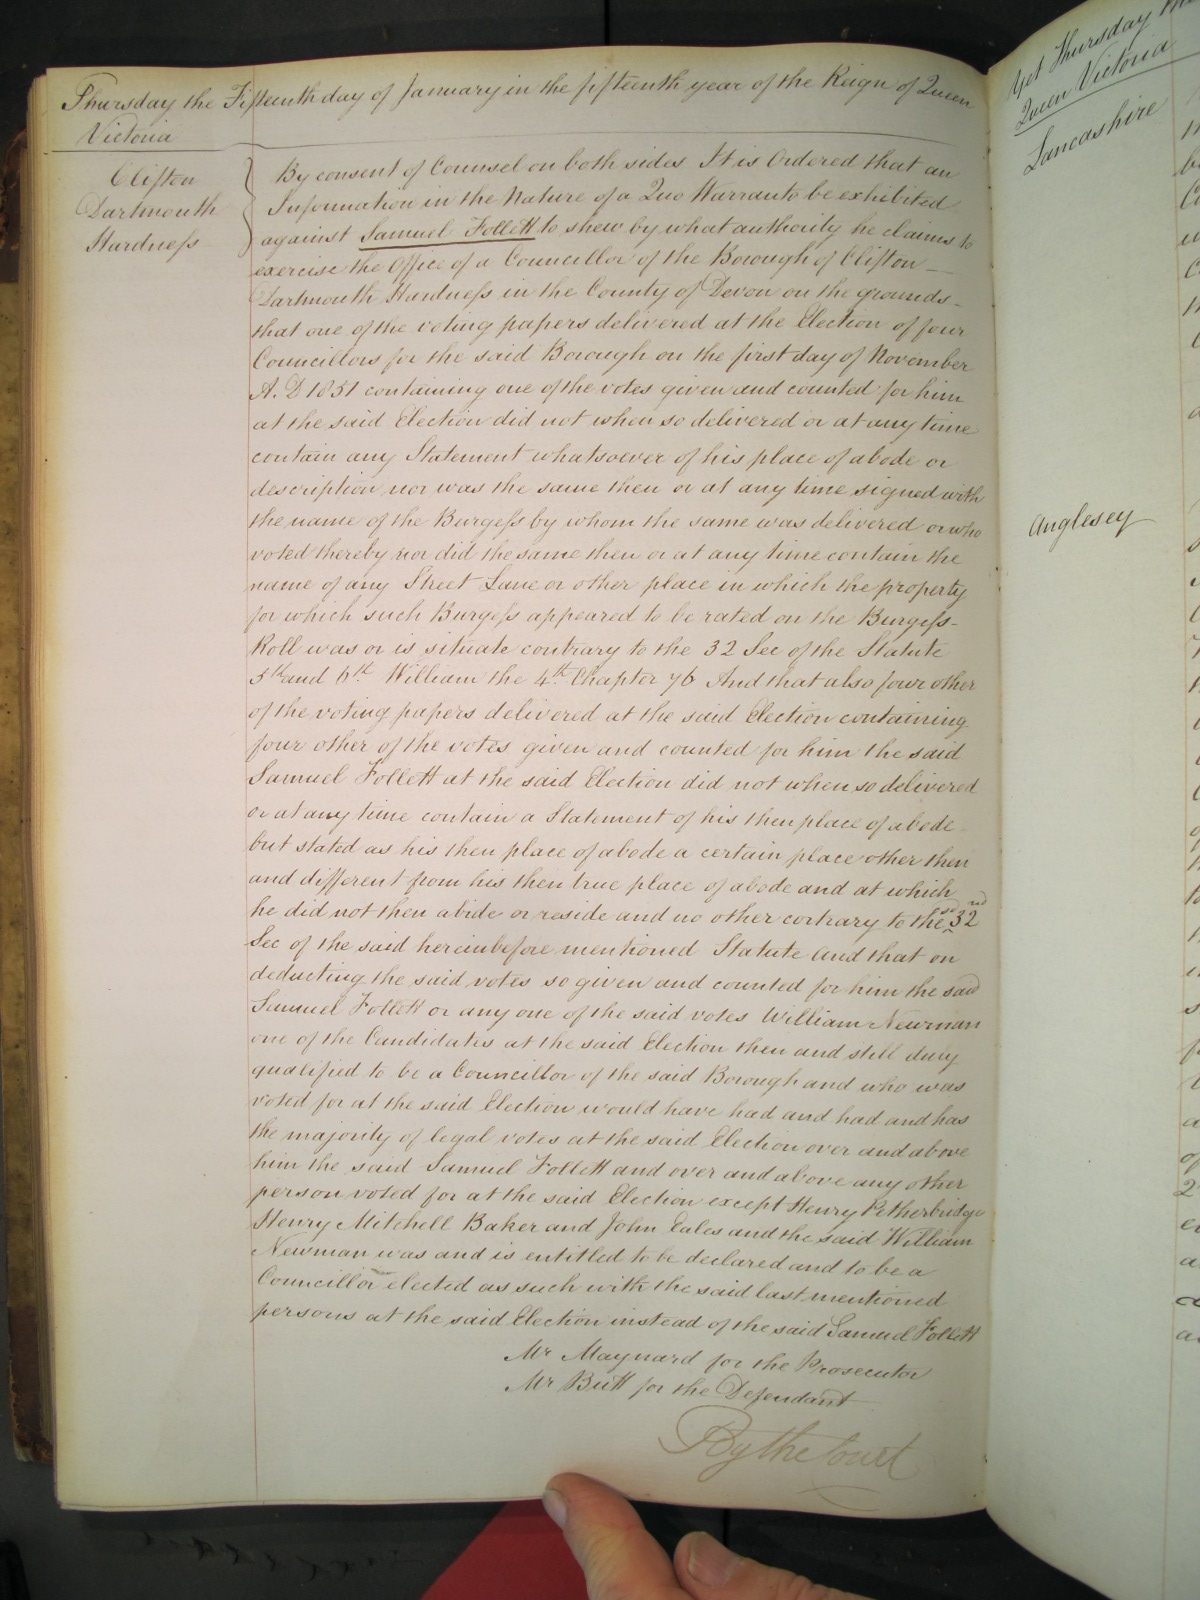 Thursday the Fifteenth day of January in the fifteenth year of the Reign of Queen
Victoria
Clifton
Dartmouth
Hardness
By consent of Counsel on both sides It is Ordered that an
Information in the Nature of a Quo Warranto be exhibited
against Samuel Follett to shew by what authority he claims to
exercise the Office of a Councillor of the Borough of Clifton
Dartmouth Hardness in the County of Devon on the grounds
that one of the voting papers delivered at the Election of four
Councillors for the said Borough on the first day of November
A. D 1851 containing one of the votes given and counted for him
at the said Election did not when so delivered or at any time
contain any Statement whatsoever of his place of abode or
description nor was the same then or at any time signed with
the name of the Burgess by whom the same was delivered or who
voted thereby nor did the same then or at any time contain the
name of any Street Lane or other place in which the property
for which such Burgess appeared to be rated on the Burgess-
Roll was or is situate contrary to the 32 Sec of the Statute
5th and 6th William the 4th Chapter 76 And that also four other
of the voting papers delivered at the said Election containing
four other of the votes given and counted for him the said
Samuel Follett at the said Election did not when so delivered
or at any time contain a Statement of his then place of abode
but stated as his then place of abode a certain place other then
and different from his then true place of abode and at which
he did not then abide or reside and no other contrary to the sd 32nd
Sec of the said hereinbefore mentioned Statute And that on
deducting the said votes so given and counted for him the said
Samuel Follett or any one of the said votes William Newman
one of the Candidates at the said Election then and still duly
qualified to be a Councillor of the said Borough and who was
voted for at the said Election would have had and had and has
the majority of legal votes at the said Election over and above
him the said Samuel Follett and over and above any other
person voted for at the said Election except Henry Petherbridge
Henry Mitchell Baker and John Eales and the said William
Newman was and is entitled to be declared and to be a
Councillor elected as such with the said last mentioned
persons at the said Election instead of the said Samuel Follett
Mr Maynard for the Prosecutor
Mr Butt for the Defendant
By the Court
Yet Thursday the
Queen Victoria
Lancashire
Anglesey